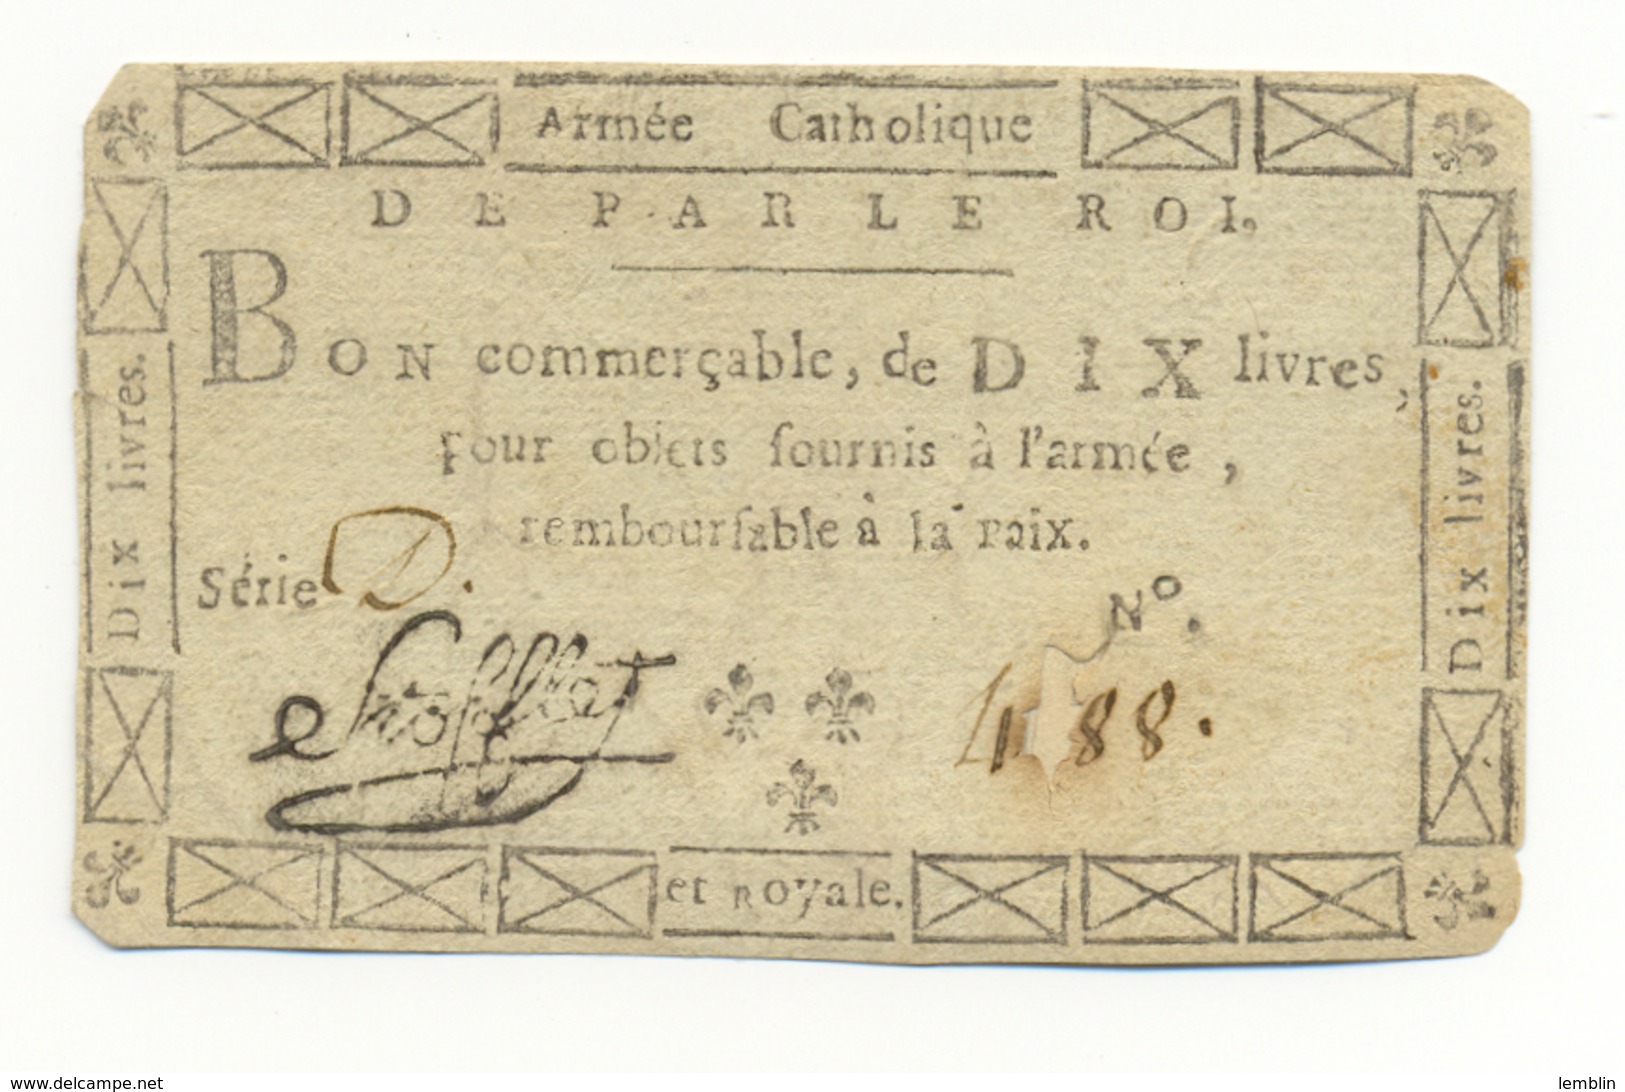 Armée Catholique
DE PAR LE ROI,
BON commerçable, de DIX livres,
pour objets fournis à l'armée,
rembourſable à la paix.
Série D.
N°.
Stofflet
488.
Dix livres.
Dix livres.
et Royale.
www.delcampe.net
lemblin